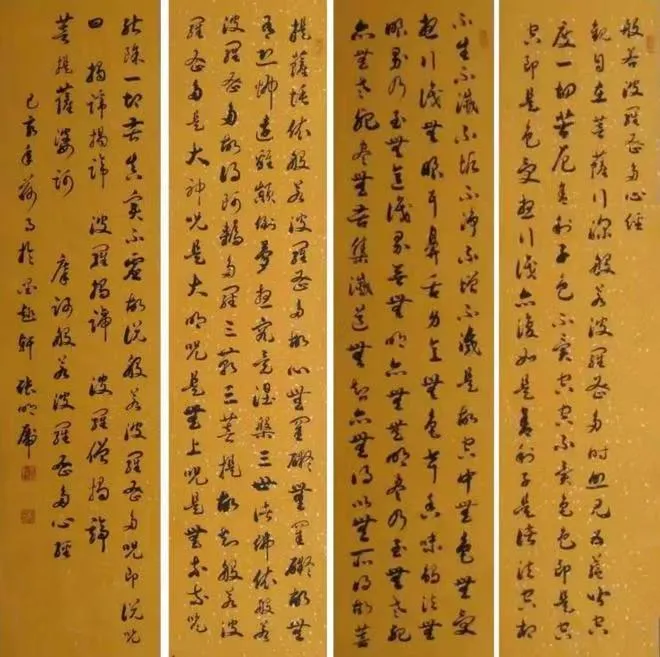 般若波羅蜜多心經
觀自在菩薩行深般若波羅蜜多時照見五蘊皆空
度一切苦厄舍利子色不異空空不異色色即是空
空即是色受想行識亦復如是舍利子是諸法空相
不生不滅不垢不淨不增不減是故空中無色無受
想行識無眼耳鼻舌身意無色聲香味觸法無
眼界乃至無意識界無無明亦無無明盡乃至無老死
亦無老死盡無苦集滅道無智亦無得以無所得故菩
提薩埵依般若波羅蜜多故心無罣礙無罣礙故無
有恐怖遠離顛倒夢想究竟涅槃三世諸佛依般若
波羅蜜多故得阿耨多羅三藐三菩提故知般若波
羅蜜多是大神咒是大明咒是無上咒是無等等咒
能除一切苦真實不虛故說般若波羅蜜多咒即說咒
曰 揭諦揭諦 波羅揭諦 波羅僧揭諦
菩提薩婆訶 摩訶般若波羅蜜多心經
己亥年荷月於墨趣軒 張明